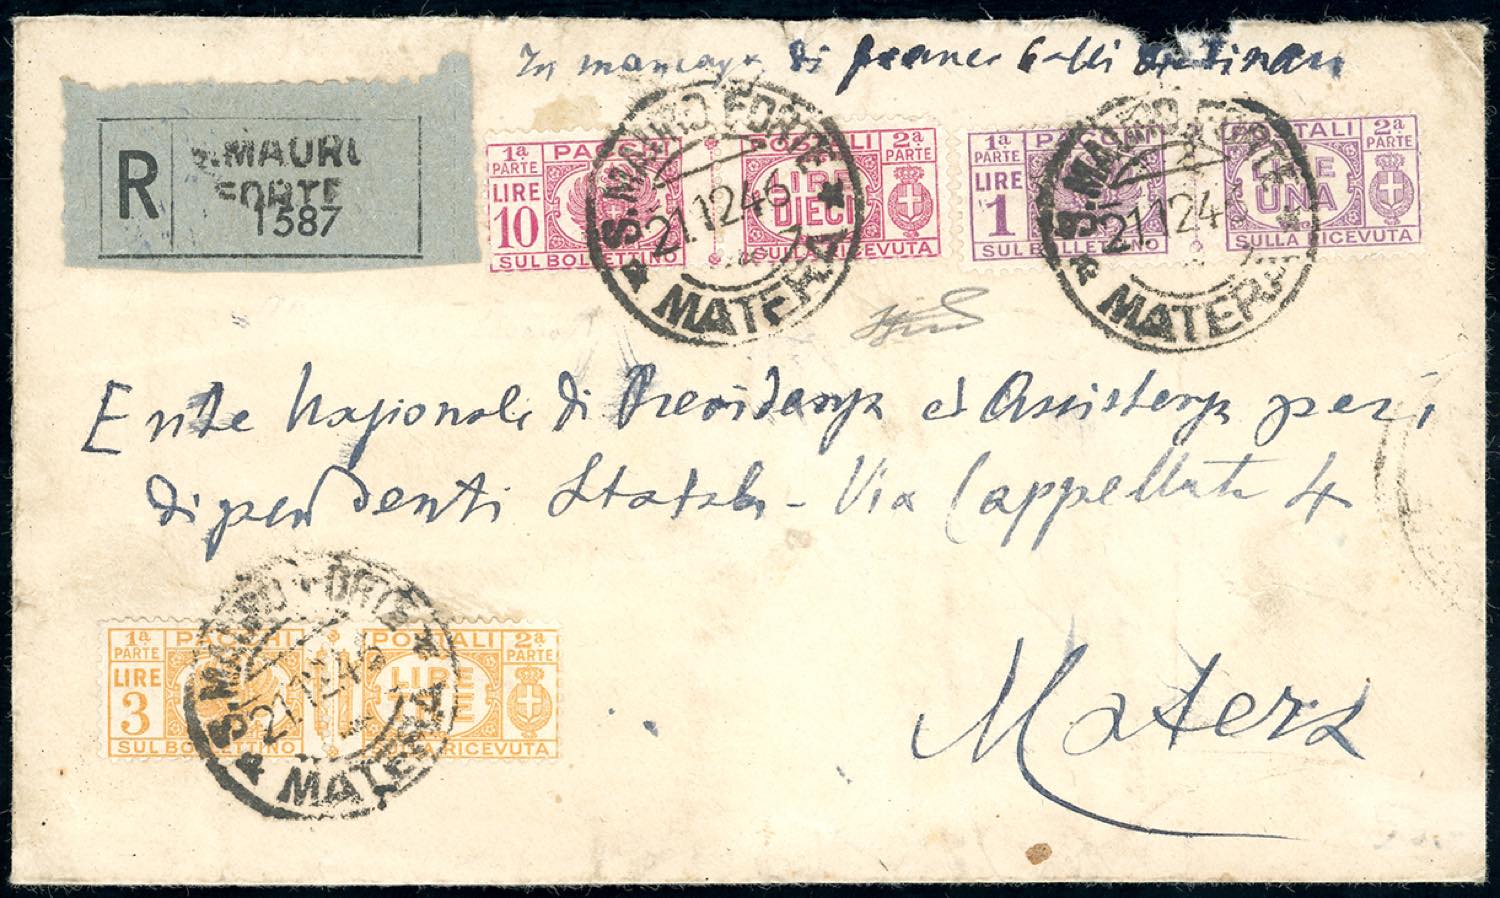 In mancanza di francobolli ordinari
R
S.MAURO
FORTE
1587
1ª PARTE PACCHI POSTALI 2ª PARTE
LIRE 10 LIRE DIECI
SUL BOLLETTINO SULLA RICEVUTA
1ª PARTE PACCHI POSTALI 2ª PARTE
LIRE 1 LIRE UNA
SUL BOLLETTINO SULLA RICEVUTA
S.MAURO FORTE
21.12.46
MATERA
S.MAURO FORTE
21.12.46
MATERA
Ente Nazionale di Previdenza ed Assistenza per i
dipendenti Statali - Via Cappelluti 4
Matera
1ª PARTE PACCHI POSTALI 2ª PARTE
LIRE 3 LIRE TRE
SUL BOLLETTINO SULLA RICEVUTA
S.MAURO FORTE
21.12.46
MATERA